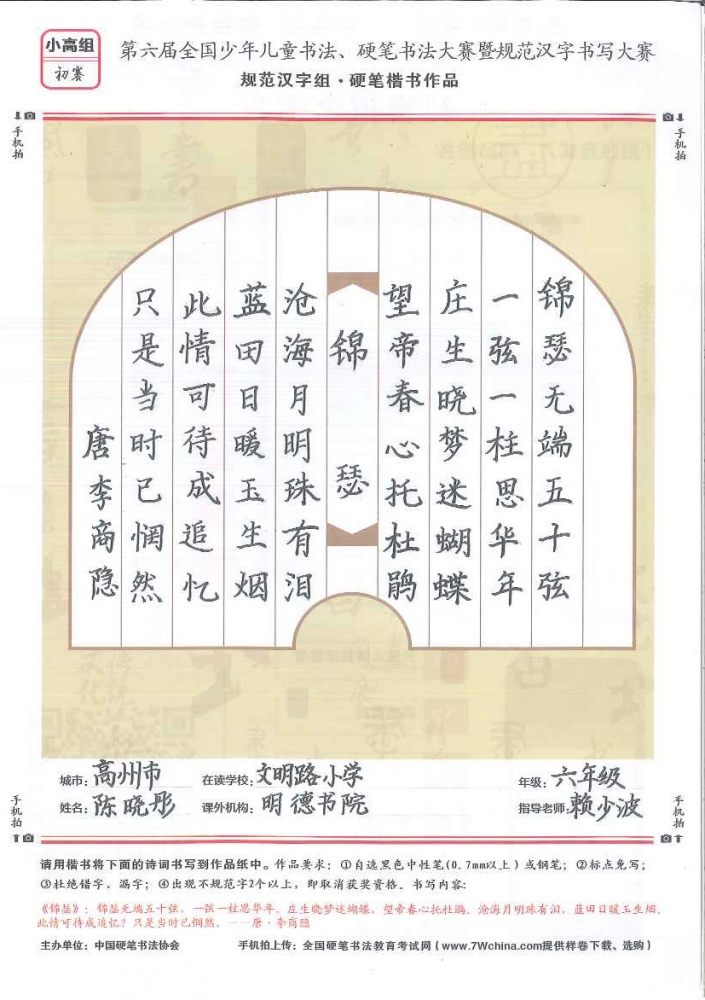 小高组
初赛
第六届全国少年儿童书法、硬笔书法大赛暨规范汉字书写大赛
规范汉字组·硬笔楷书作品
手机拍
手机拍
锦瑟无端五十弦
一弦一柱思华年
庄生晓梦迷蝴蝶
望帝春心托杜鹃
锦瑟
沧海月明珠有泪
蓝田日暖玉生烟
此情可待成追忆
只是当时已惘然
唐李商隐
城市：高州市 在读学校：文明路小学 年级：六年级
姓名：陈晓彤 课外机构：明德书院 指导老师：赖少波
手机拍
手机拍
请用楷书将下面的诗词书写到作品纸中。作品要求：①自选黑色中性笔（0.7mm以上）或钢笔；②标点免写；
③杜绝错字、漏字；④出现不规范字2个以上，即取消获奖资格。书写内容：
《锦瑟》：锦瑟无端五十弦，一弦一柱思华年。庄生晓梦迷蝴蝶，望帝春心托杜鹃。沧海月明珠有泪，蓝田日暖玉生烟。
此情可待成追忆？只是当时已惘然。——唐·李商隐
主办单位：中国硬笔书法协会 手机拍上传：全国硬笔书法教育考试网（www.7Wchina.com提供样卷下载、选购）